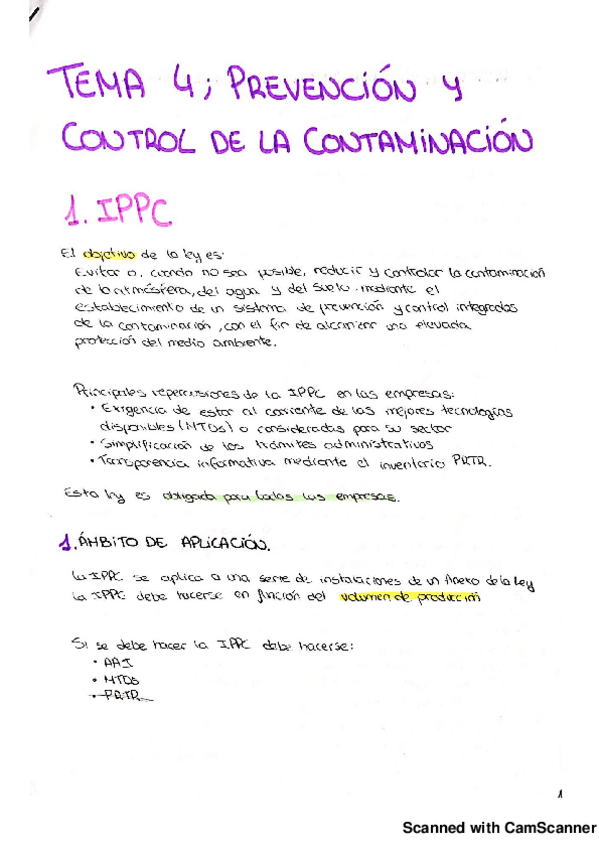 TEMA 4; PREVENCIÓN Y
CONTROL DE LA CONTAMINACIÓN
1. IPPC
El objetivo de la ley es:
Evitar o, cuando no sea posible, reducir y controlar la contaminación
de la atmósfera, del agua y del suelo mediante el
establecimiento de un sistema de prevención y control integrados
de la contaminación, con el fin de alcanzar una elevada
protección del medio ambiente.
Principales repercusiones de la IPPC en las empresas:
• Exigencia de estar al corriente de las mejores tecnologías
disponibles (MTDs) o consideradas para su sector
• Simplificación de los trámites administrativos
• Transparencia informativa mediante el inventario PRTR.
Esta ley es obligada para todas las empresas.
1. ÁMBITO DE APLICACIÓN.
La IPPC se aplica a una serie de instalaciones de un Anexo de la ley
la IPPC debe hacerse en función del volumen de producción
Si se debe hacer la IPPC debe hacerse:
• AAI
• MTDs
• PRTR
1
Scanned with CamScanner